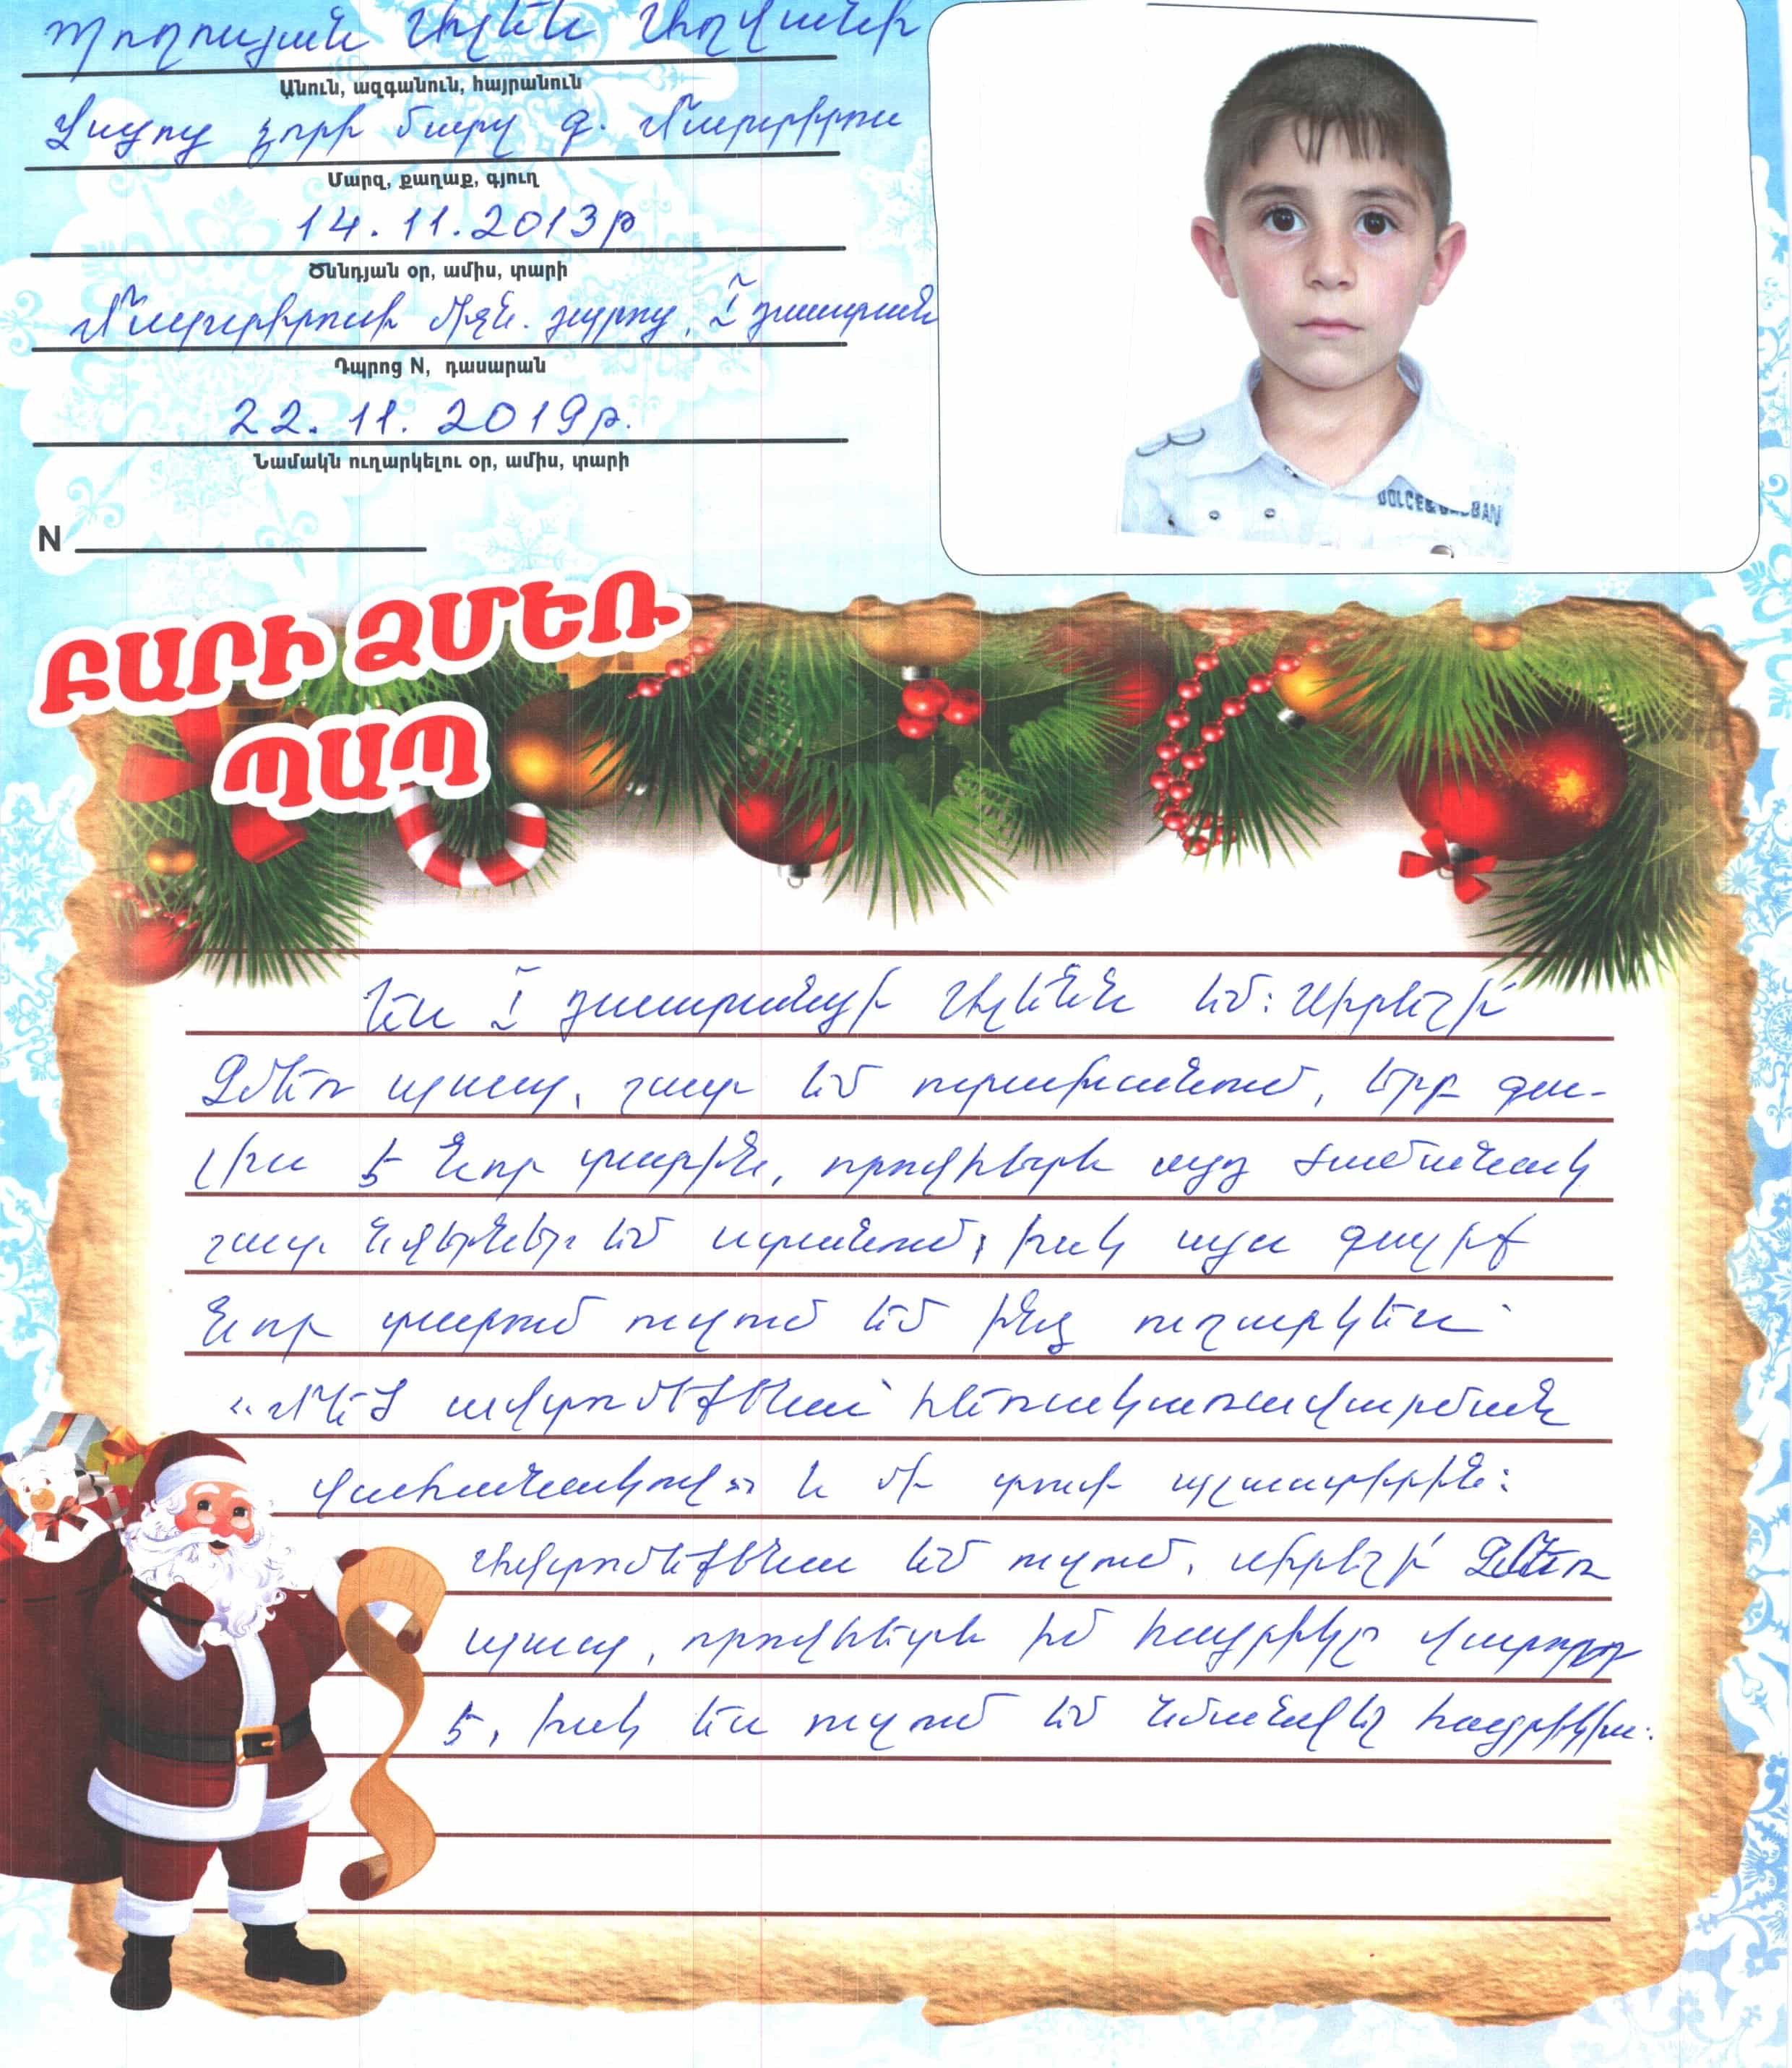 Պողոսյան Ալեն Աղվանի
Անուն, ազգանուն, հայրանուն
Վայոց ձորի մարզ գ. Մարտիրոս
Մարզ, քաղաք, գյուղ
14. 11. 2013թ
Ծննդյան օր, ամիս, տարի
Մարտիրոսի միջն. դպրոց, I դասարան
Դպրոց N, դասարան
22. 11. 2019թ.
Նամակն ուղարկելու օր, ամիս, տարի
N
ԲԱՐԻ ՁՄԵՌ
ՊԱՊ
DOLCE&
Ես I դասարանցի Ալենն եմ: Սիրելի՛
Ձմեռ պապ, շատ եմ ուրախանում, երբ գա-
լիս է Նոր տարին, որովհետև այդ ժամանակ
շատ նվերներ եմ ստանում, իսկ այս գալիք
Նոր տարում ուզում եմ ինձ ուղարկես՝
«Մեծ ավտոմեքենա՝ հեռակառավարման
վահանակով» և մի տուփ պլաստիլին:
Ավտոմեքենա եմ ուզում, սիրելի՛ Ձմեռ
պապ, որովհետև իմ հայրիկը վարորդ
է, իսկ ես ուզում եմ նմանվել հայրիկիս: